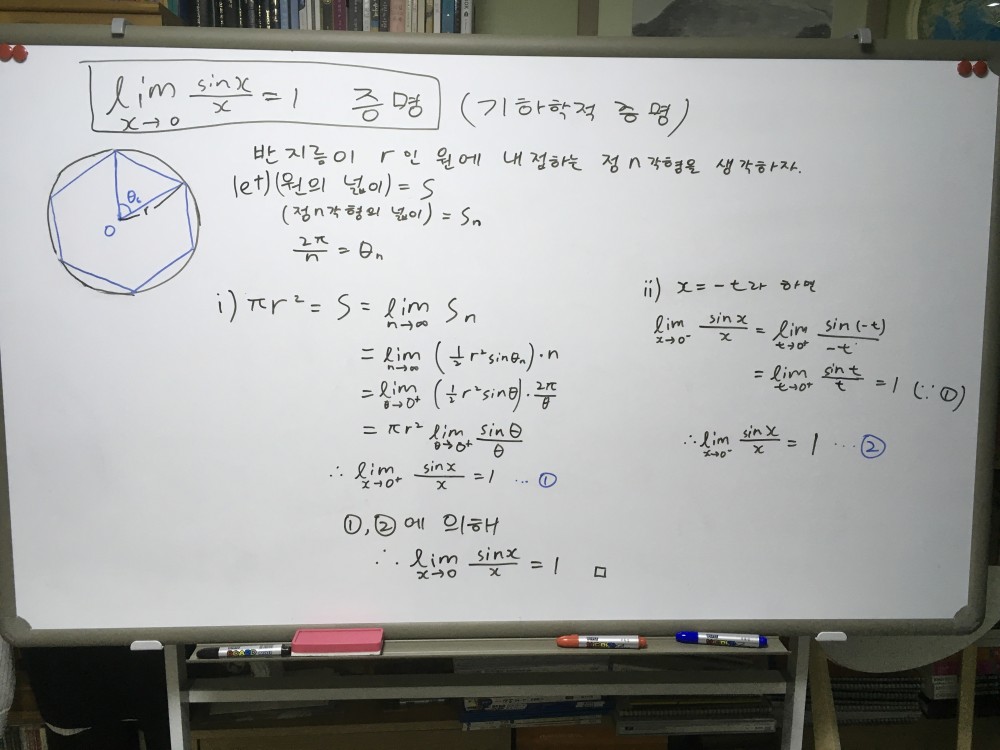 lim x→0 sinx/x = 1 증명 (기하학적 증명)
반지름이 r인 원에 내접하는 정n각형을 생각하자.
let) (원의 넓이) = S
(정n각형의 넓이) = Sn
2π/n = θn
θ6
r
O
i) πr² = S = lim n→∞ Sn
= lim n→∞ (1/2 r² sinθn)·n
= lim θ→0+ (1/2 r² sinθ)·2π/θ
= πr² lim θ→0+ sinθ/θ
∴ lim x→0+ sinx/x = 1 … ①
ii) x = -t라 하면
lim x→0- sinx/x = lim t→0+ sin(-t)/-t
= lim t→0+ sint/t = 1 (∵ ①)
∴ lim x→0- sinx/x = 1 … ②
①, ②에 의해
∴ lim x→0 sinx/x = 1 □